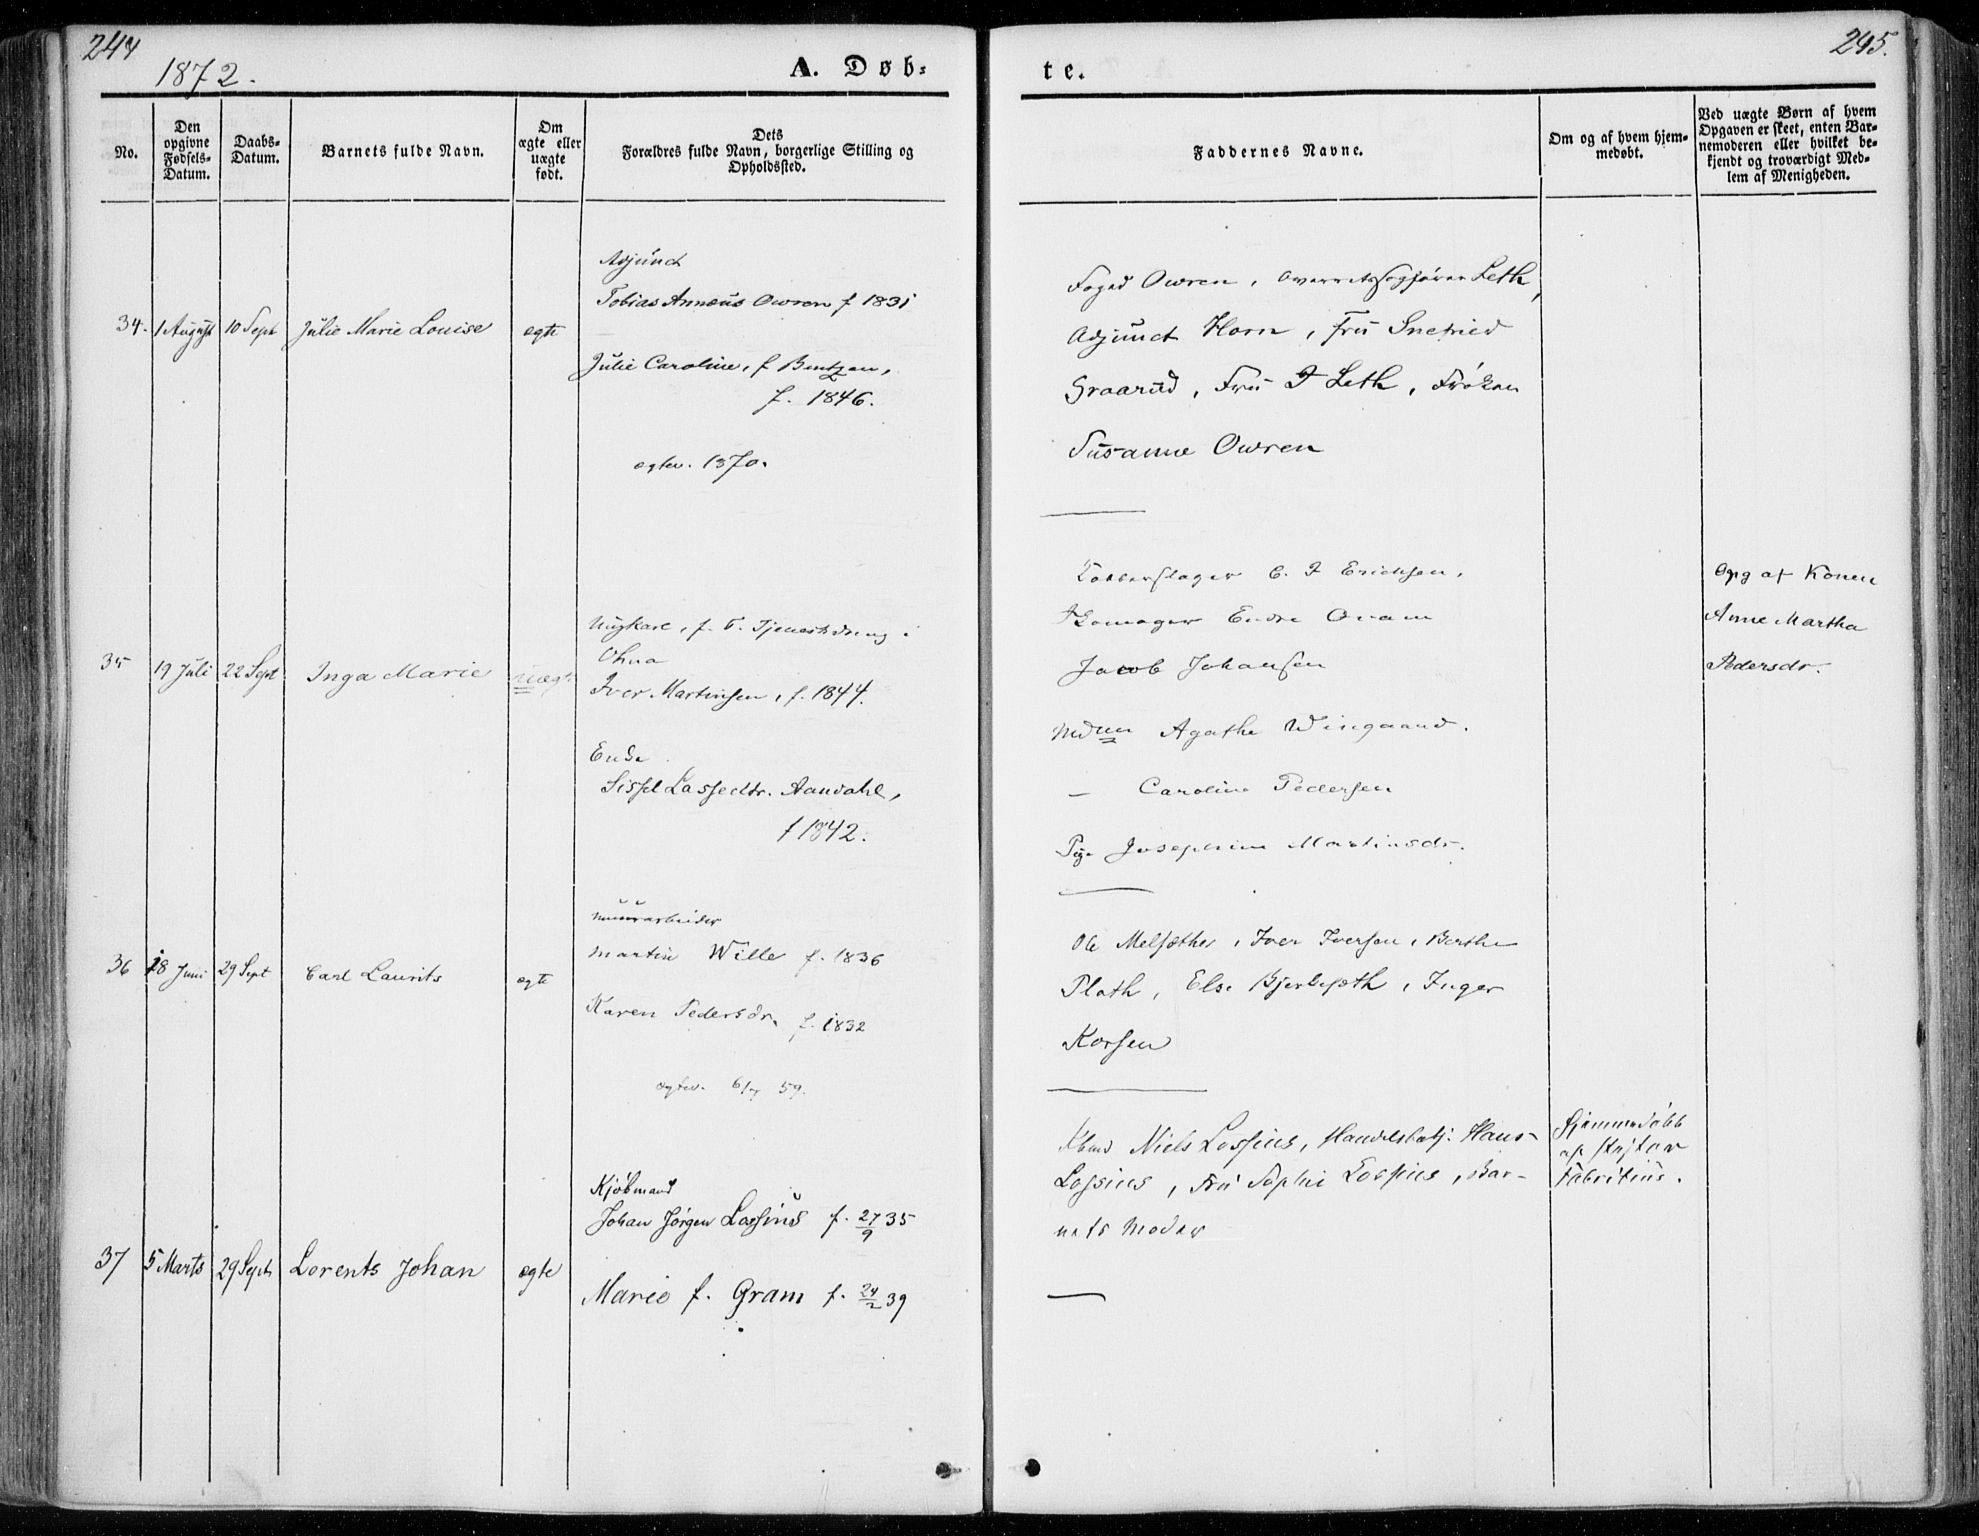 244
1872.
A. Døb-
No.
Den
opgivne
Fødsels-
Datum.
Daabs-
Datum.
Barnets fulde Navn.
Om
ægte eller
uægte
født.
Dets
Forældres fulde Navn, borgerlige Stilling og
Opholdssted.
34. 1 August 10 Sept Julie Marie Louise ægte
Adjunct
Tobias Annæus Owren f 1831
Julie Caroline, f Bentzen,
f. 1846.
egtev. 1870.
35 19 Juli 22 Sept Inga Marie uægte
Ungkarl, f. T. Tjenestedreng i
Iver Martinsen, f. 1844.
Enke
Sissel Lassedtr. Aandahl,
f 1842.
36 18 Juni 29 Sept Carl Laurits egte
muurarbeider
Martin Wille f. 1836
Karen Pedersdr. f. 1832
egtev. 59.
37 5 Marts 29 Sept Lorents Johan egte
Kjøbmand
Johan Jørgen Lossius f. 27/9 35
Marie f. Gram f. 24/2 39
245.
te.
Faddernes Navne.
Om og af hvem hjem-
medøbt.
Ved uægte Børn af hvem
Opgaven er skeet, enten Bar-
nemoderen eller hvilket be-
kjendt og troværdigt Med-
lem af Menigheden.
Foged Owren, Overretssagfører Leth,
Adjunct Horn, Fru Snefried
Graarud, Fru J Leth, Frøken
Susanne Owren
Kobberslager C. J Erichsen,
Skomager Endre
Jacob Johansen
Mdme Agathe Wisgaard.
— Caroline Pedersen
Pige Josephine Martinsdr.
Opg af Konen
Anne Martha
Pedersdr.
Ole Melsæther, Iver Iversen, Berthe
Plath, Else, Inger
Korsen
Kbmd Niels Lossius, Handelsbetj: Hans
Lossius, Fru Sophie Lossius, Bar-
nets Moder
Hjemmedøbt
af
Fabritius.